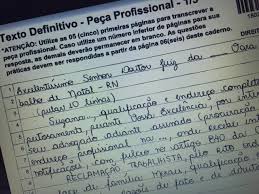 Texto Definitivo - Peça Profissional - 1/5
*ATENÇÃO: Utilize as 05 (cinco) primeiras páginas para transcrever a
peça profissional. Caso utilize um número inferior de páginas para sua
resposta, as demais deverão permanecer em branco. As questões
práticas deverem ser respondidas a partir da página 06(seis) deste caderno.
1 Excelentíssimo Senhor Doutor Juiz da Vara
2 balho de Natal - RN
3 (pular 10 linhas)
4 Suzana, qualificação e endereço
5 peitosamente, perante Vossa Excelência, por
6 seu advogado adiante assinado (procuração
7 endereço profissional na rua, onde recebe
8 notificação, com fulcro no artigo 840 da
9 RECLAMAÇÃO TRABALHISTA, pelo rito
10 de familiar Moraes, qualificação
de fato e de direito